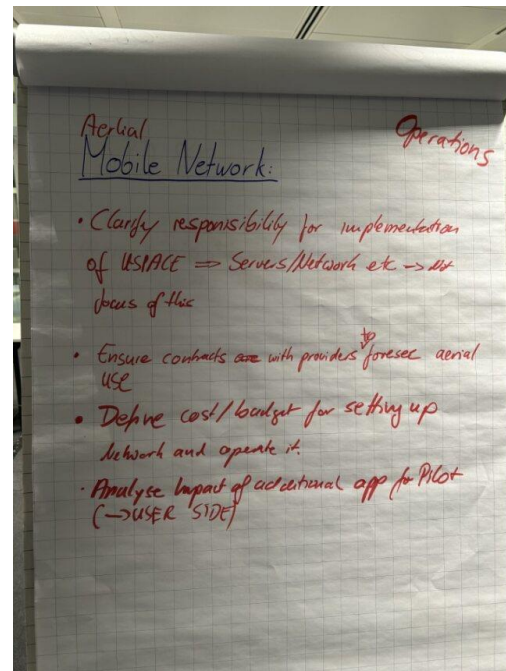 Aerial
Mobile Network:
Operations
• Clarify responsibility for implementation
of USPACE ⇒ Servers/Network etc → not
focus of this
• Ensure contracts with providers to foresee aerial
use
• Define cost/budget for setting up
Network and operate it.
• Analyse impact of additional app for Pilot
(→ USER SIDE)